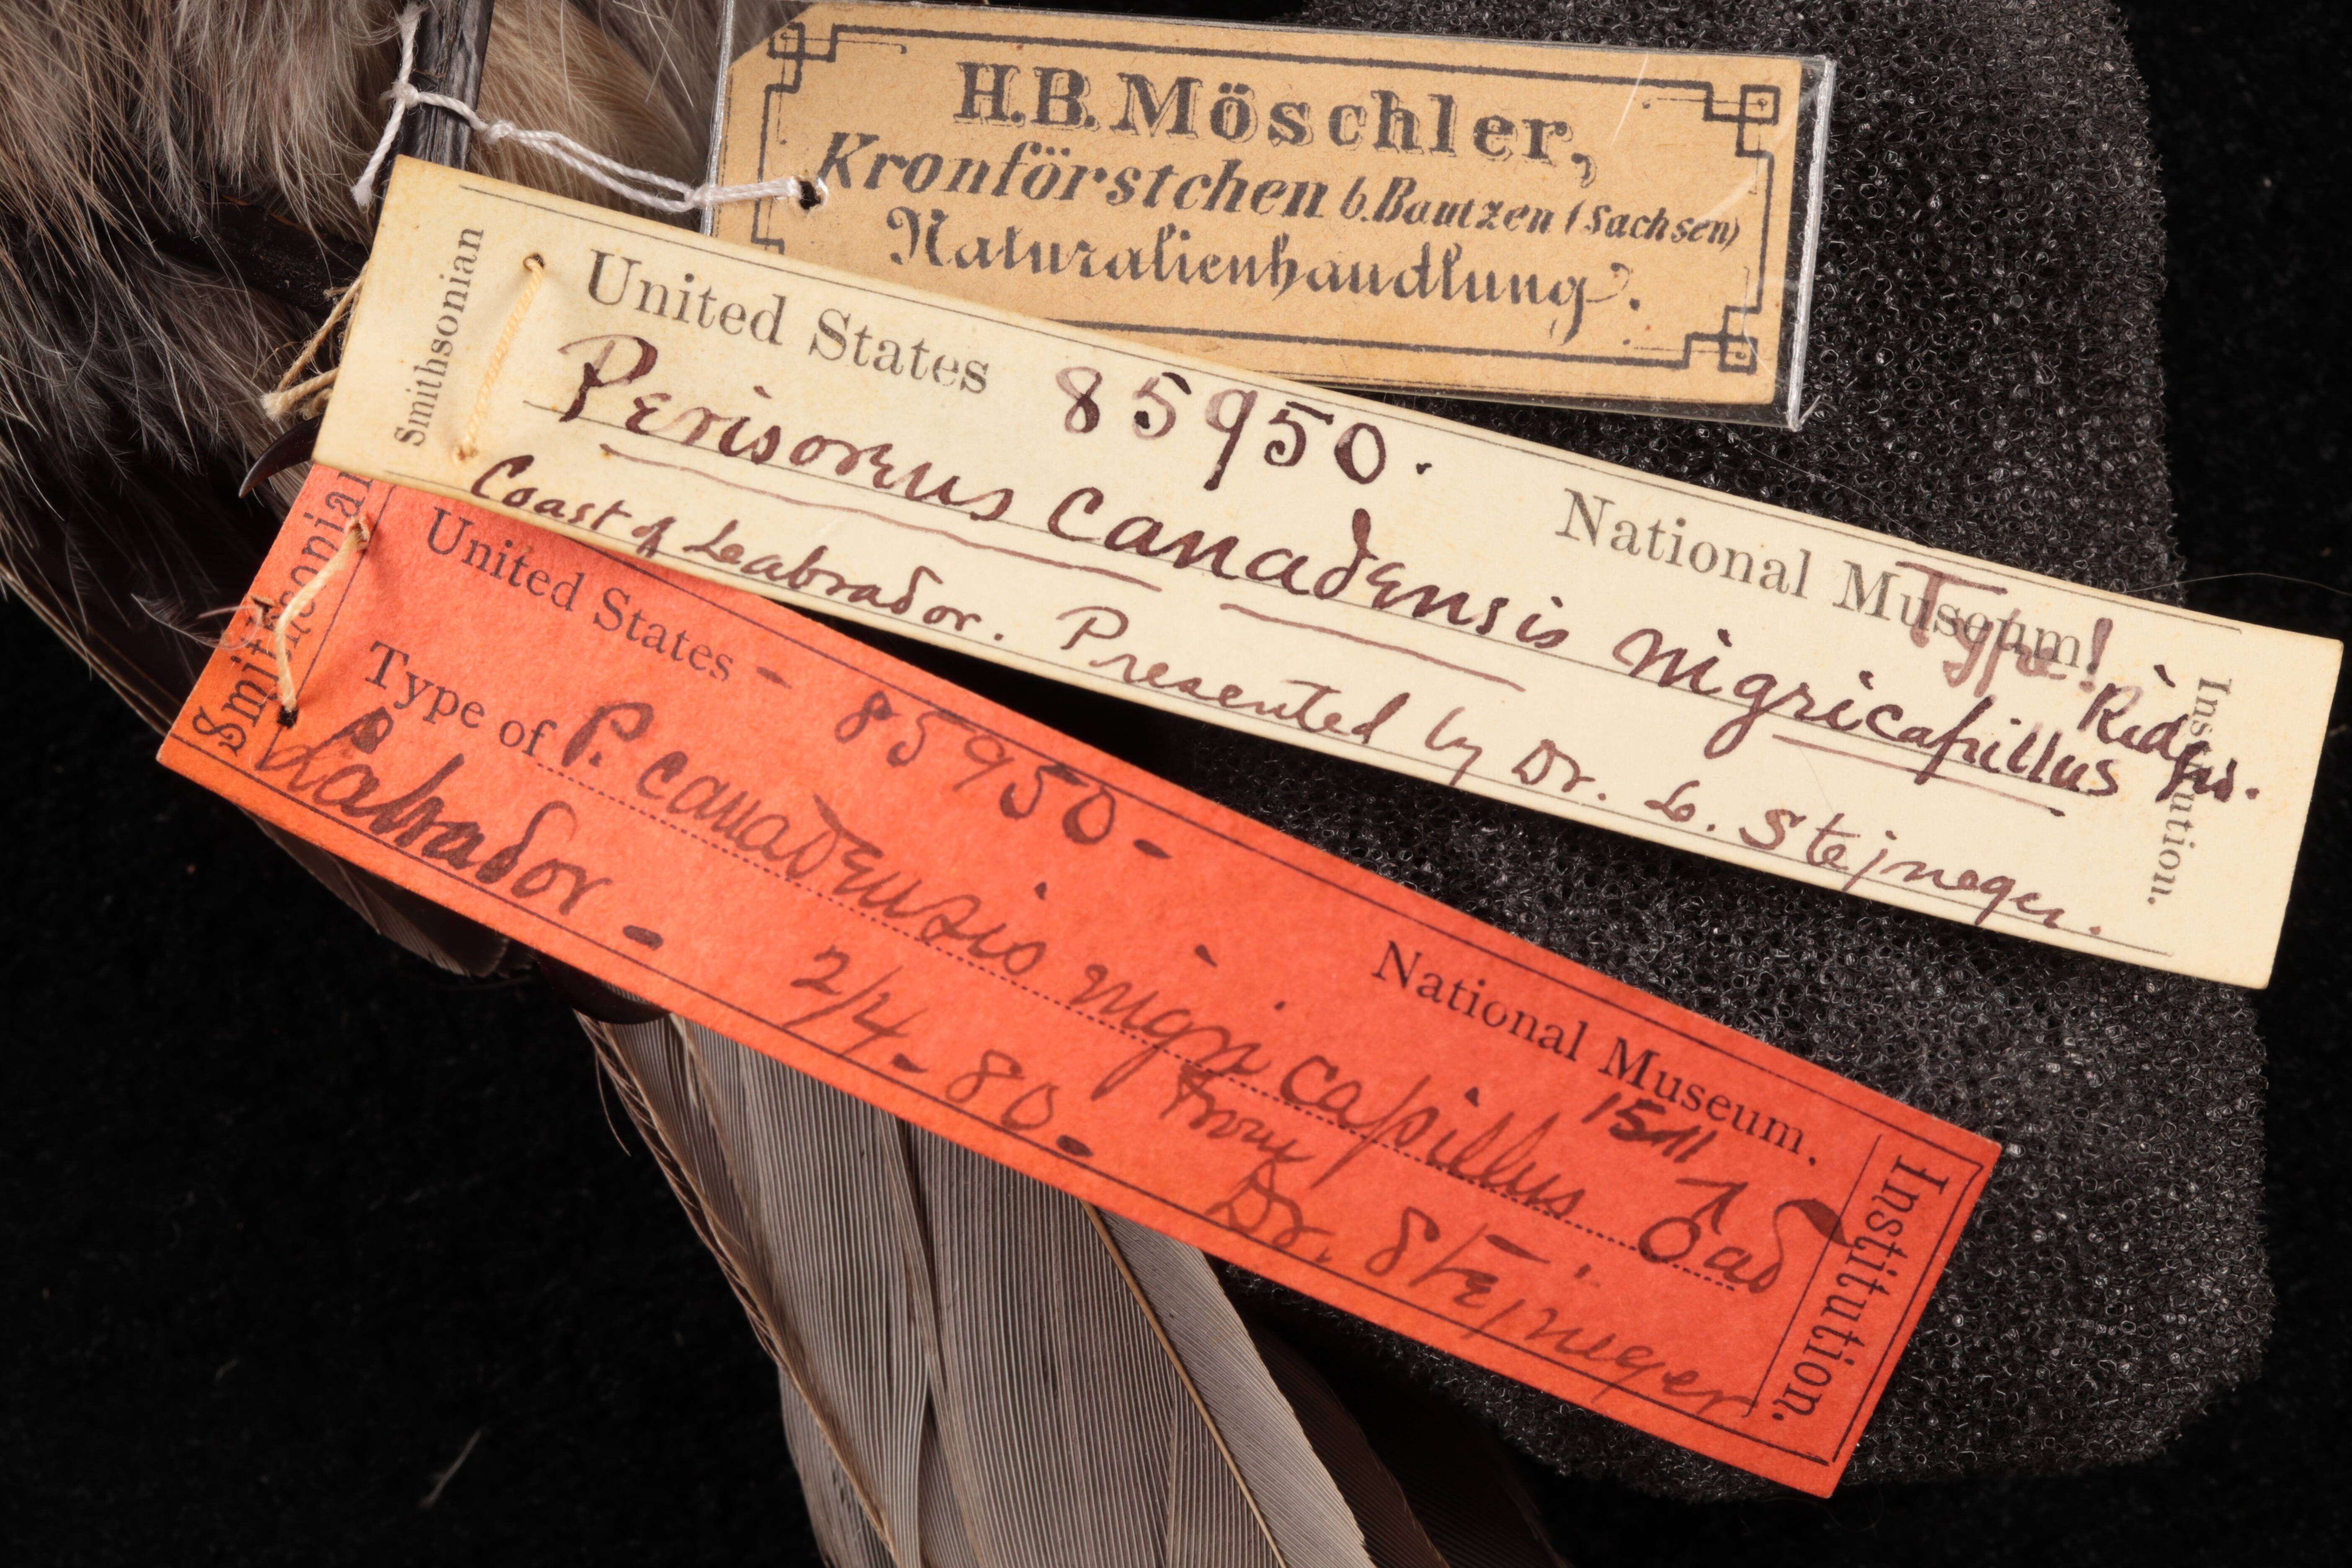 H.B. Möschler,
Kronförstchen b. Bautzen (Sachsen)
Naturalienhandlung.
Smithsonian
United States 85950. National Museum.
Type!
Perisoreus canadensis nigricapillus Ridgw.
Coast of Leabrador. Presented by Dr. L. Stejneger.
Institution.
Smithsonian
United States - 85950 - National Museum.
1511
Type of P. canadensis nigricapillus ♂ ad
Labrador - 2/4 - 80 - From
Dr. Stejneger
Institution.